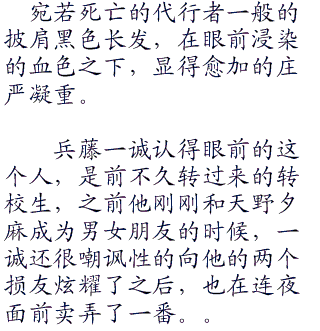 宛若死亡的代行者一般的
披肩黑色长发，在眼前浸染
的血色之下，显得愈加的庄
严凝重。
兵藤一诚认得眼前的这
个人，是前不久转过来的转
校生，之前他刚刚和天野夕
麻成为男女朋友的时候，一
诚还很嘲讽性的向他的两个
损友炫耀了之后，也在连夜
面前卖弄了一番。。